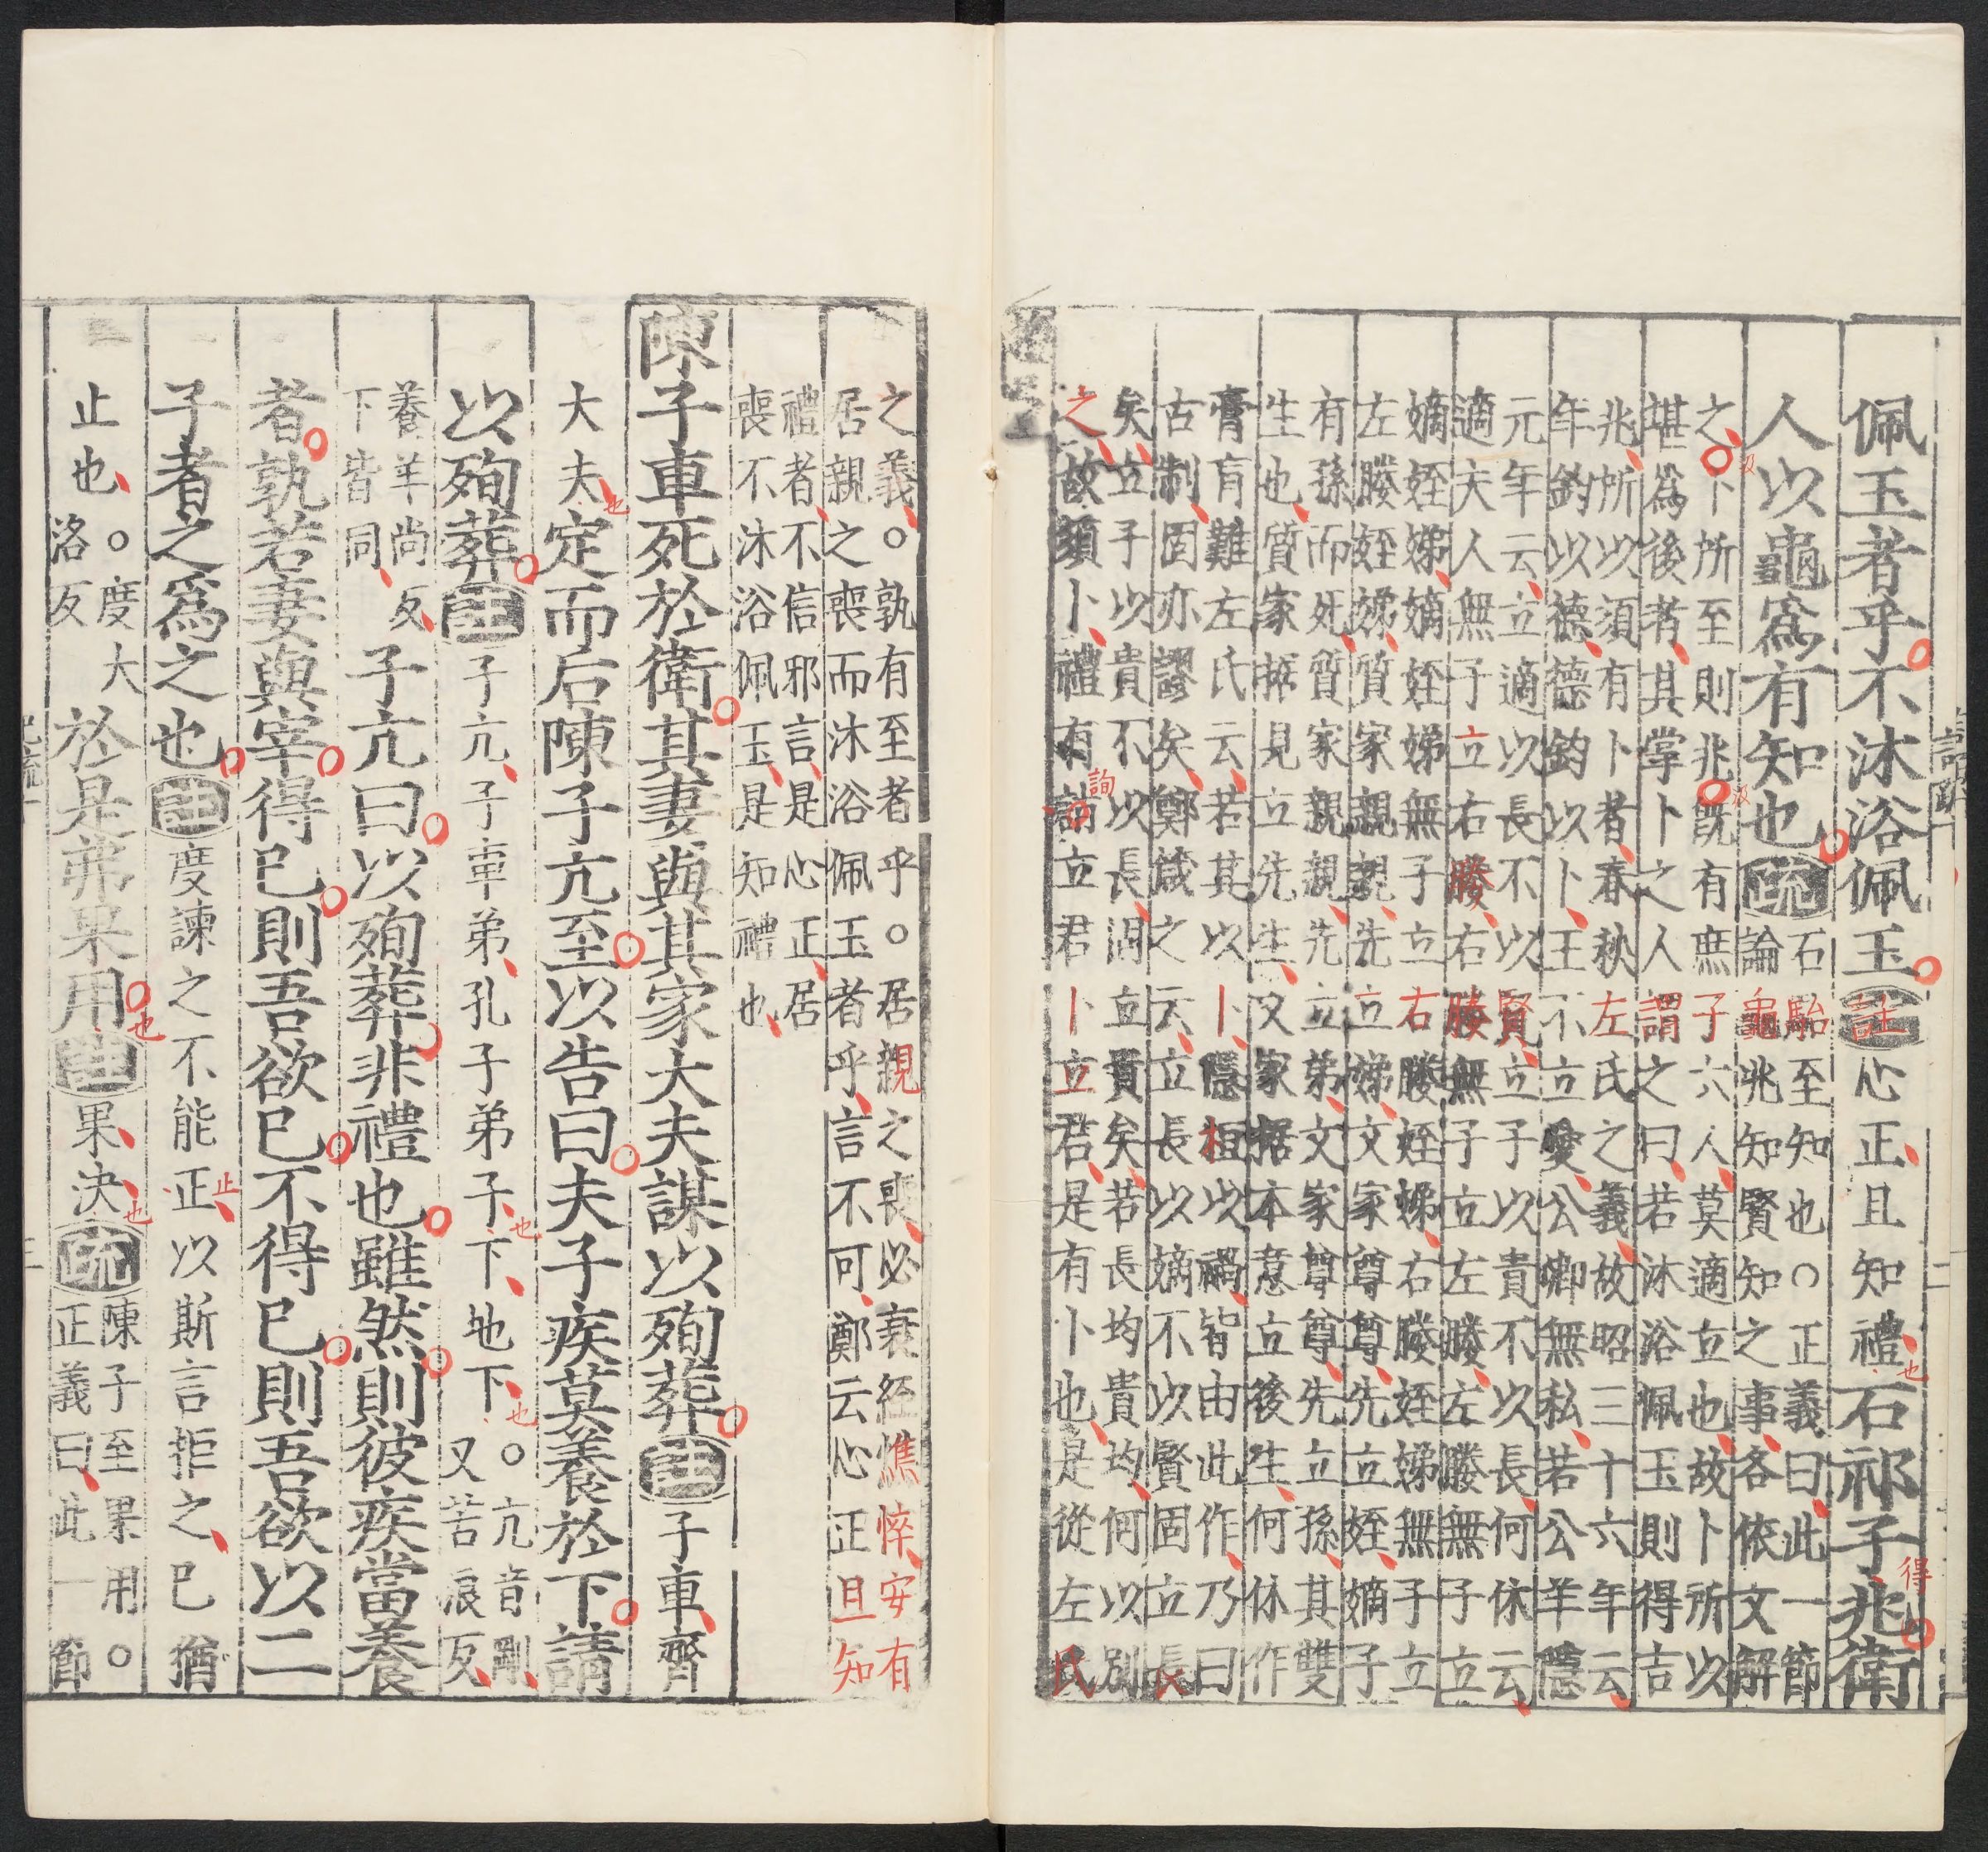 佩玉者乎不沐浴佩玉註心正且知禮也石祁子兆得衛
人以龜爲有知也疏石駘至知也○正義曰此一節
論龜兆知賢知之事各依文解
之卜所至則兆既有庶子六人莫適立也故卜所以
堪爲後者其掌卜之人謂之曰若沐浴佩玉則得吉
兆所以須有卜者春秋左氏之義故昭三十六年云
年鈞以德德鈞以卜王不立愛公卿無私若公羊隱
元年云立適以長不以賢立子以貴不以長何休云
適夫人無子立右媵右媵無子立左媵左媵無子立
嫡姪娣嫡姪娣無子立右媵姪娣右媵姪娣無子立
左媵姪娣質家親親先立娣文家尊尊先立姪嫡子
有孫而死質家親親先立弟文家尊尊先立孫其雙
生也質家据見立先生文家据本意立後生何休作
膏肓難左氏云若其以卜隱桓以禍皆由此作乃曰
古制固亦謬矣鄭箴之云立長以嫡不以賢固立長
矣立子以貴不以長涸立貴矣若長均貴均何以別
之故須卜禮有詢立君卜立君是有卜也是從左氏
之義○孰有至者乎○居親之喪必衰絰憔悴安有
居親之喪而沐浴佩玉者乎言不可鄭云心正且知
禮者不信邪言是心正居
喪不沐浴佩玉是知禮也
陳子車死於衛其妻與其家大夫謀以殉葬註子車齊
大夫也定而后陳子亢至以告曰夫子疾莫養於下請
以殉葬註子亢子車弟孔子弟子也下地下也○亢音剛
又苦浪反
養羊尚反
下皆同
子亢曰以殉葬非禮也雖然則彼疾當養
者孰若妻與宰得已則吾欲已不得已則吾欲以二
子者之爲之也註度諫之不能正止以斯言拒之已猶
止也○度大
洛反
於是弗果用也註果決也疏陳子至果用○
正義曰此一節